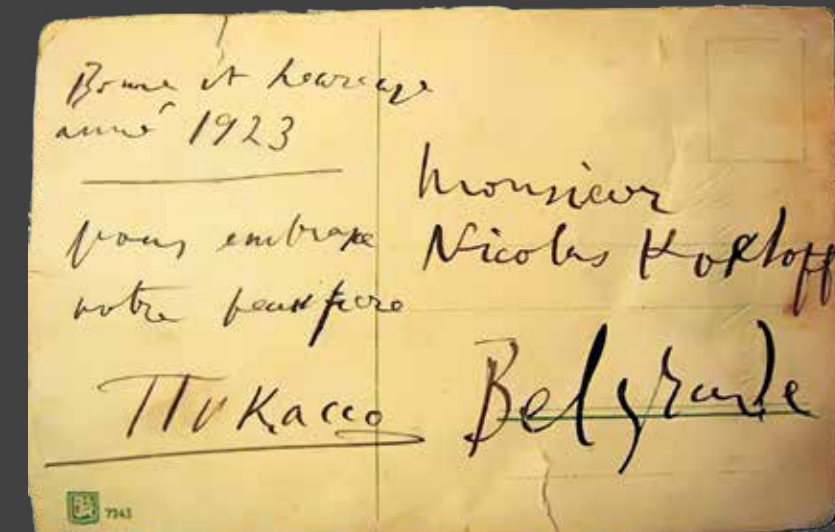 Bonne et heureuse
anné 1923
vous embrasse
votre beau frere
Пикассо
Monsieur
Nicolas Kokloff
Belgrade
7343